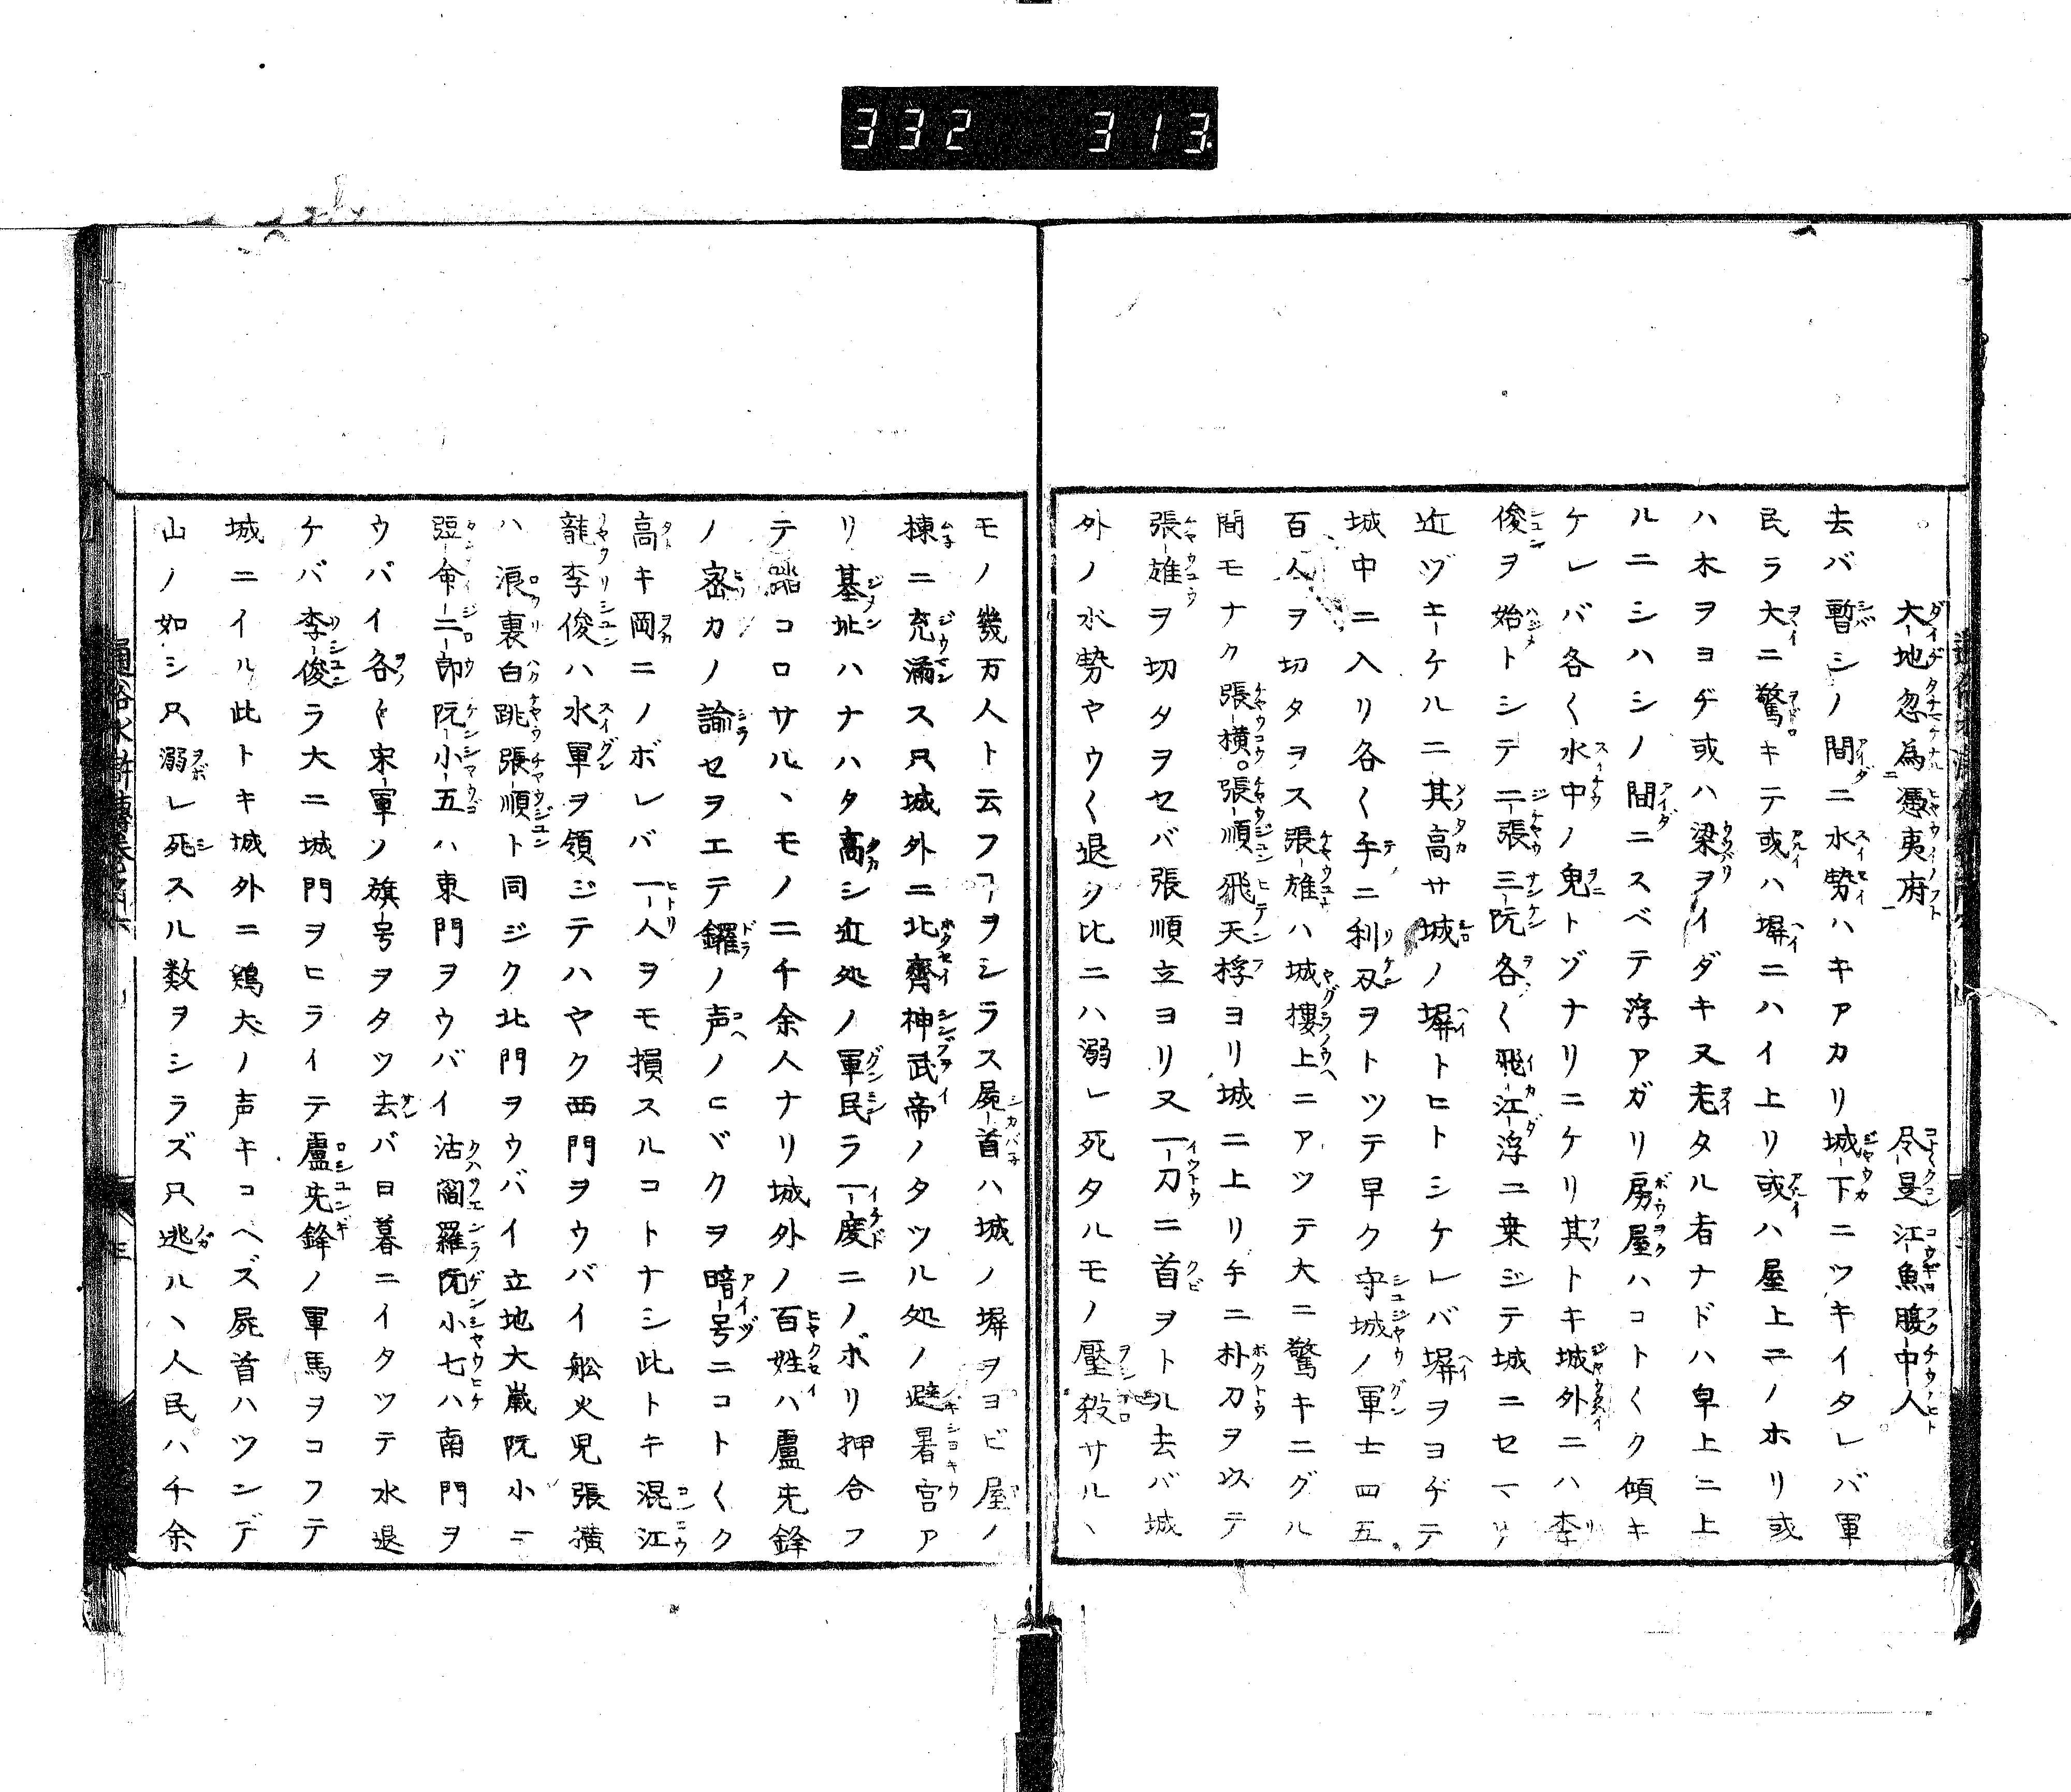 332 313
大地忽為憑夷府 尽是江魚腹中人
去バ暫シノ間ニ水勢ハキアカリ城下ニツキイタレバ軍
民ラ大ニ驚キテ或ハ塀ニハイ上リ或ハ屋上ニノホリ或
ハ木ヲヨヂ或ハ梁ヲイダキ又老タル者ナドハ卓上ニ上
ルニシハシノ間ニスベテ浮アガリ房屋ハコト〱ク傾キ
ケレバ各〱水中ノ鬼トゾナリニケリ其トキ城外ニハ李
俊ヲ始トシテ二張三阮各〱飛江浮ニ乗ジテ城ニセマリ
近ヅキケルニ其高サ城ノ塀トヒトシケレバ塀ヲヨヂテ
城中ニ入リ各〱手ニ利刄ヲトツテ早ク守城ノ軍士四五
百人ヲ切タヲス張雄ハ城樓上ニアツテ大ニ驚キニグル
間モナク張横。張順飛天桴ヨリ城ニ上リ手ニ朴刀ヲ以テ
張雄ヲ切タヲセバ張順立ヨリ又一刀ニ首ヲトル去バ城
外ノ水勢ヤウ〱退ク比ニハ溺レ死タルモノ壓殺サルヽ
モノ幾万人ト云フヿヲシラス屍首ハ城ノ塀ヲヨビ屋ノ
棟ニ充満ス只城外ニ北齊神武帝ノタツル処ノ避暑宮ア
リ基址ハナハタ高シ近処ノ軍民ラ一度ニノボリ押合フ
テコロサルヽモノ二千余人ナリ城外ノ百姓ハ盧先鋒
ノ密カノ諭セヲエテ鑼ノ声ノヒヾクヲ暗号ニコト〱ク
高キ岡ニノボレバ一人ヲモ損スルコトナシ此トキ混江
龍李俊ハ水軍ヲ領ジテハヤク西門ヲウバイ舩火児張横
ハ浪裏白跳張順ト同ジク北門ヲウバイ立地大歳阮小二
短命二郎阮小五ハ東門ヲウバイ活閻羅阮小七ハ南門ヲ
ウバイ各〱宋軍ノ旗号ヲタツ去バ日暮ニイタツテ水退
ケバ李俊ラ大ニ城門ヲヒライテ盧先鋒ノ軍馬ヲコフテ
城ニイル此トキ城外ニ鶏犬ノ声キコヘズ屍首ハツンデ
山ノ如シ只溺レ死スル数ヲシラズ只逃ルヽ人民ハ千余
通俗水滸傳巻之
三